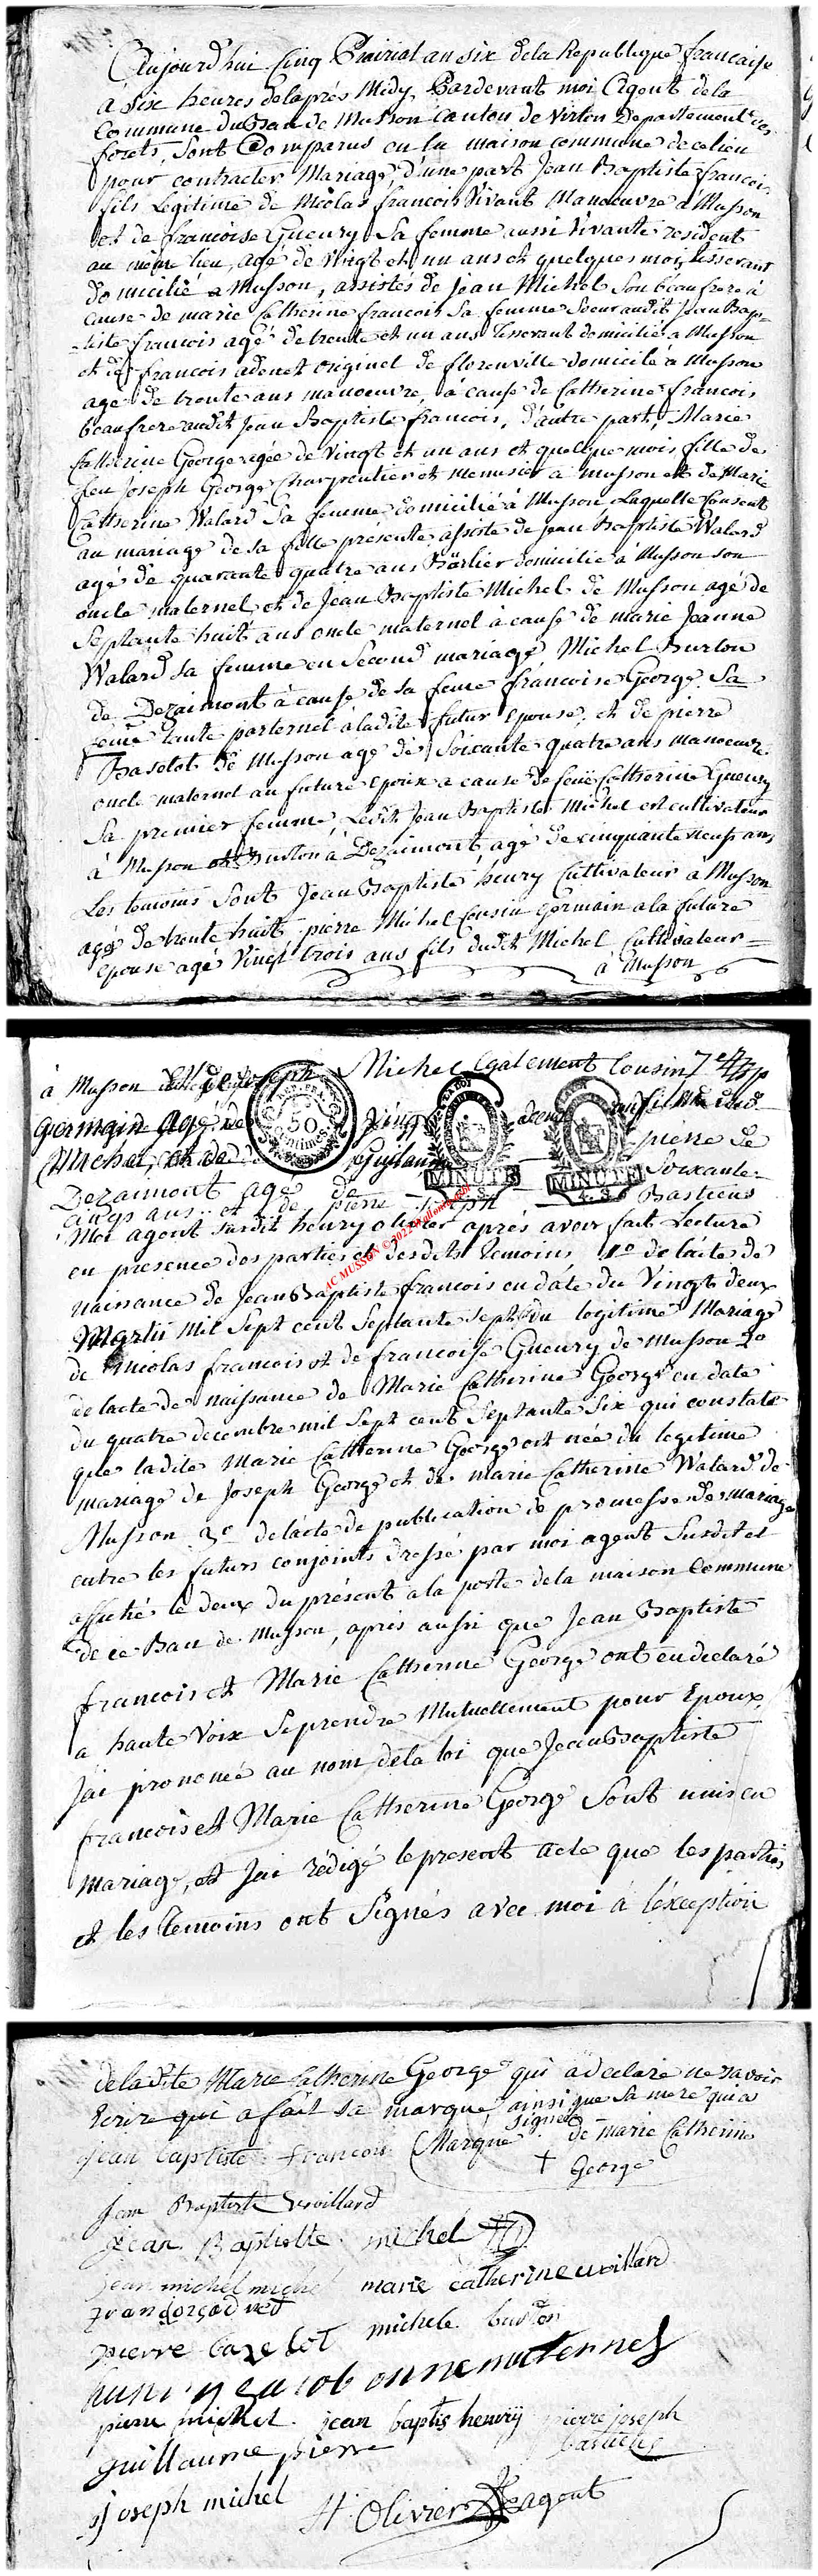 Aujourd'hui Cinq Prairial an six dela Republique francaise
à Six heures delaprés Midy Pardevant moi Agent dela
Commune du Ban de Musson Canton de Virton Departement des
forets, Sont Comparus en la maison commune de ce lieu
pour contracter Mariage, d'une part Jean Baptiste francois
fils Legitime de Nicolas francois Vivant Manoeuvre a Musson
et de francoise Gueury Sa femme aussi Vivante resident
au même lieu, agé de Vingt et un ans et quelques mois, tisserant
domicilié a Musson, assistés de Jean Michel Son beaufrere à
cause de marie Catherine francois Sa femme Soeur audit Jean Bap=
=tiste francois agé de trente et un ans Tisserant domicilié a Musson
et de francois adenet originel de florenville domicilé a Musson
agé de trente ans manoeuvre, à cause de Catherine francois
beaufrere audit Jean Baptiste francois, d'autre part, Marie
Catherine George agée de Vingt et un ans et quelque mois fille de
feu Joseph George Charpentier et menusier a musson et de Marie
Catherine Walard Sa femme domicilié à Musson Laquelle Consent
au mariage de sa fille présente assisté de Jean Baptiste Walard
agé de quarante quatre ans domicilié a Musson son
oncle maternel et de Jean Baptiste Michel de Musson agé de
Septante huit ans oncle maternel à cause de marie Jeanne
Walard sa femme en Second mariage Michel Burton
de Dezaimont à cause de sa feme francoise George Sa
feme tante parternel à ladite futur Epouse, et de pierre
Baselot de Musson agé de Soixante quatre ans manoeuvre
oncle maternel au future epoux a cause de feüe Catherine Gueury
Sa premier femme, Ledit Jean Baptiste Michel est cultivateur
à Musson et Burton à Dezaimont agé de cinquante neuf ans
Les temoins Sont Jean Baptiste henry Cultivateur a Musson
agé de trente huit pierre Michel Cousin Germain a la future
epouse agé Vingt trois ans fils dudit Michel Cultivateur=
à Musson
à Musson et de Joseph Michel Egalement Cousin
germain Agé de Vingt deux ans fils dud.
Michel, et de Guilaume pierre de
Dezaimont agé de Soixante=
cinqs ans et de pierre Joseph Bastiens
50 Centimes
LA LOI
MINUTE
MINUTE
AC MUSSON © 2022
Moi agent susdit henry olivier aprés avoir fait Lecture
en presence des parties et desdits temoins 1º de lácte de
naissance de Jean Baptiste francois en dáte du Vingt deux
Martii Mil Sept cent Septante sept du legitime Mariage
de Nicolas francois et de francoise Gueury de Musson 2º
de lacte de naissance de Marie Catherine George en date
du quatre decembre mil Sept cent Septante Six qui constate
que ladite Marie Catherine George est née du legitime
mariage de Joseph George et de marie Catherine Walard de
Musson 3º delácte de publication de promesse de mariage
entre les futurs conjoints dressé par moi agent Susdit et
affiché le deux du présent a la porte dela maison Commune
de ce Ban de Musson, après aussi que Jean Baptiste
francois et Marie Catherine George ont eu declaré
a haute Voix Se prendre Mutuellement pour Epoux,
Jai prononcé au nom dela loi que Jean Baptiste
francois et Marie Catherine George Sont unis en
mariage, et Jai rédigé le present acte que les parties
et les temoins ont Signés avec moi à léxception
deladite Marie Catherine George qui a declaré ne savoir
Ecrire qui a fait Sa marque ainsi que Sa mere qui a
signé
jean baptiste francois Marque de marie Catherine
+ George
Jean Baptiste Wuillard
jean Baptistte michel
jean michel michel marie catherine wuillard
pierre bazelot michele burton
pierre michel jean baptis henrÿ pierre joseph
guillaume pierre bastien
joseph michel
H: Olivier agent